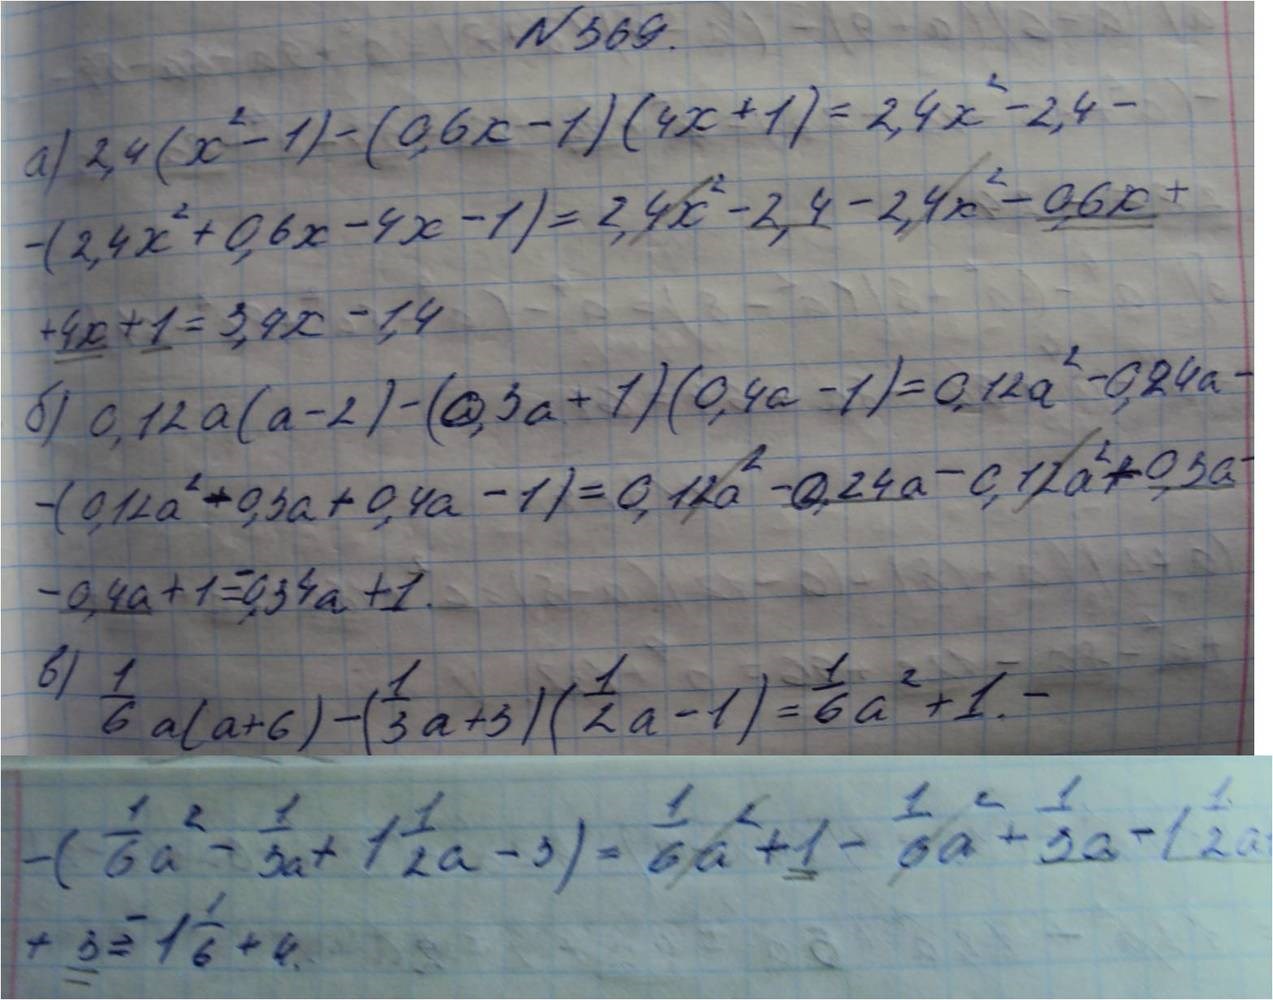 №369.
а) 2,4(x²-1)-(0,6x-1)(4x+1)=2,4x²-2,4-
-(2,4x²+0,6x-4x-1)=2,4x²-2,4-2,4x²-0,6x+
+4x+1=3,4x-1,4
б) 0,12a(a-2)-(0,3a+1)(0,4a-1)=0,12a²-0,24a-
-(0,12a²-0,3a+0,4a-1)=0,12a²-0,24a-0,12a²+0,3a-
-0,4a+1=-0,34a+1.
в) 1/6 a(a+6)-(1/3 a+3)(1/2 a-1)=1/6 a²+1.-
-(1/6 a²-1/3 a+1 1/2 a-3)=1/6 a²+1-1/6 a²+1/3 a-1 1/2 a
+3=-1 1/6+4.